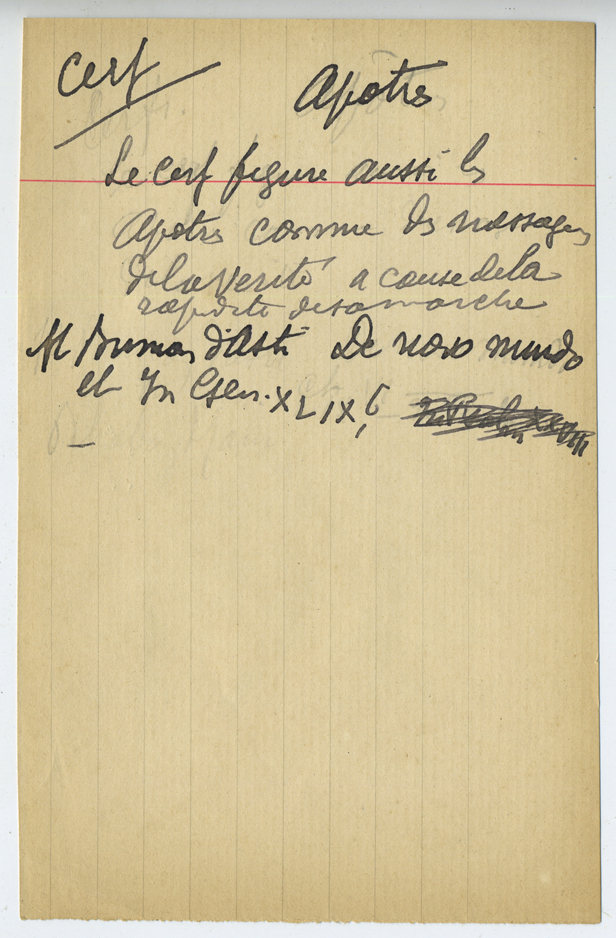 Cerf
Apotres
Le Cerf figure aussi les
Apotres comme des messagers
de la Verité a cause de la
rapidite de sa marche
St Brunon d'Asti De novo mundo
et In Gen. XLIX,